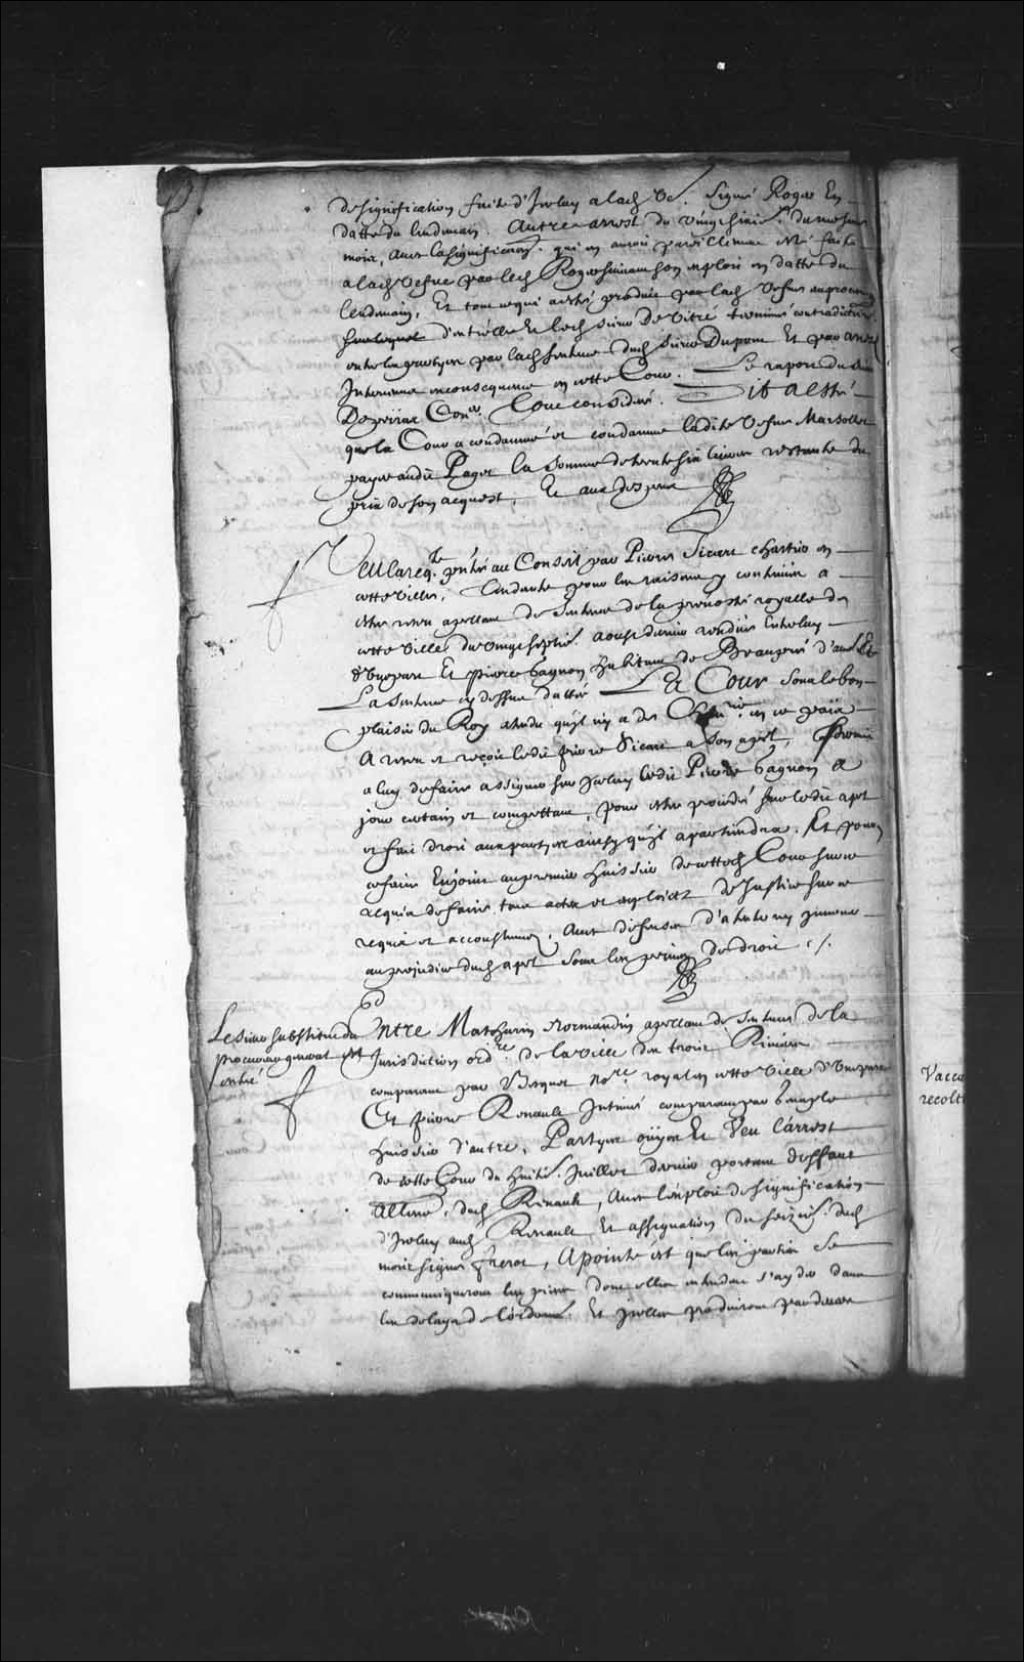 de signification faite d'Iceluy a lad. Ve. Signé Roger En
datte du lendemain. Autre arrest du vingt sixie. dumesme
mois, avec la signification qui en auroit pareillement esté faite
a lad. Vefve par led. Roger suivant son exploit en datte du
lendemain, Et tout ce qui a esté produit par lad. Vefve au proces
sur lequel d'entr'elle & led. sieur De Vitré terminé contradictoire.
entre les partyes par lad. sentence dud. sieur Dupont Et par arrest
Intervenu en consequence en cette Cour. Le raport du sieur
Depeiras Conser. Tout consideré. Dit a esté
que la Cour a condamné et condamne ladite Vefve Marsollet
payer audit Pagez la somme de trente six livres restante du
prix de son acquest, Et aux despens
Veu la reqte. pntée au Conseil par Pierre Sicart chartier en
cette Ville, Tendante pour les raisons y contenües a
estre receu appellant de sentence de la prevosté royalle de
cette Ville du vingt septie. aoust dernier rendüe Entre luy
d'Une part Et pierre Gagnon habitant de Beaupré d'autre
La sentence cy dessus dattée La Cour Sous le bon
plaisir du Roy attendu qu'il n'y a de Chanrie. en ce païs
A receu et reçoit ledit pierre Sicart a son apel, Permis
a luy de faire assigner sur Iceluy ledit Pierre Gagnon a
jour certain et competant, pour estre procédé sur ledit apel
et fait droit aux partyes ainsy qu'il apartiendra. Et pour
ce faire Enjoint au premier huissier de cetted. Cour sur ce
requis de faire tous actes et exploicts de Justice sur ce
requis et accoustumez, Avec deffenses d'attenter ny Innover
au prejudice dud. apel sous les peines de droit ./.
Le sieur substitut du
procureur general est
entré
Entre Mathurin Normandin apellant de sentence de la
Jurisdiction ordre. de la Ville des trois Rivieres
comparant par Becquet nore. royal en cette Ville d'Une part
Et pierre Renault Intimé comparant par
huissier d'autre, Partyes oüyes Et Veu L'arrest
de cette Cour du huitie. Juillet dernier portant deffaut
allencontre dud. Renault, Avec l'exploit de signification
d'Iceluy aud. Renault Et assignation du seizie. dud.
mois signé, Apointé est que les parties se
communiqueront les pieces dont elles entendent s'ayder dans
les delays de l'ordonce. Et Icelles produiront par devers
Vacca
recolte